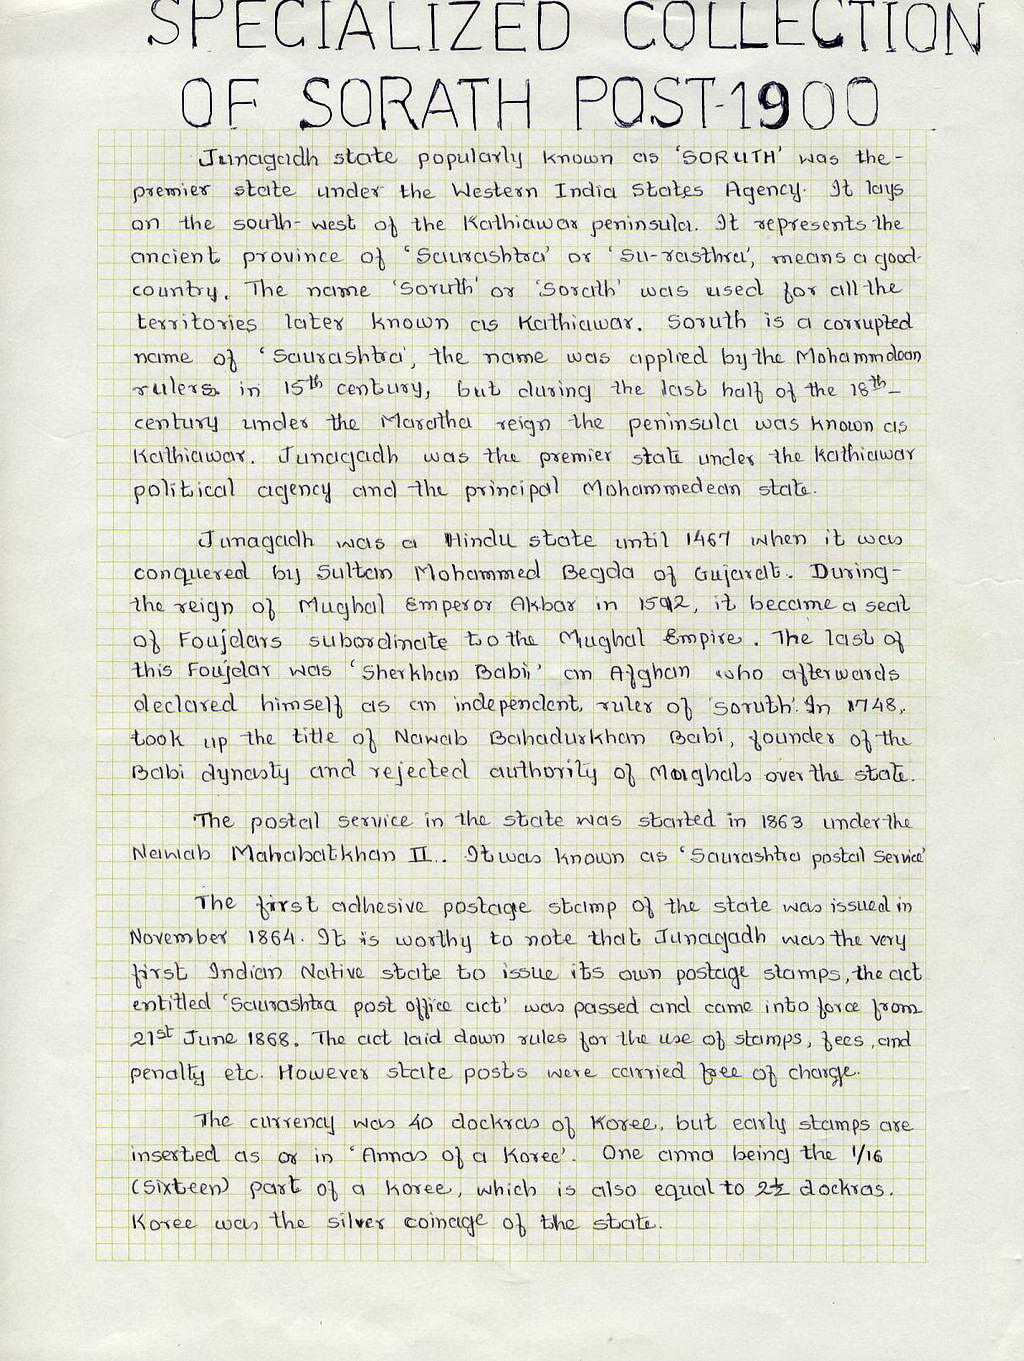 SPECIALIZED COLLECTION
OF SORATH POST-1900
Junagadh state popularly known as 'SORUTH' was the-
premier state under the Western India States Agency. It lays
on the south-west of the Kathiawar peninsula. It represents the
ancient province of 'Saurashtra' or 'Su-rasthra', means a good-
country. The name 'Soruth' or 'Sorath' was used for all the
territories later known as Kathiawar. Soruth is a corrupted
name of 'Saurashtra', the name was applied by the Mohammdean
rulers in 15th century, but during the last half of the 18th-
century under the Maratha reign the peninsula was known as
Kathiawar. Junagadh was the premier state under the Kathiawar
political agency and the principal Mohammedean state.
Junagadh was a Hindu state until 1467 when it was
conquered by Sultan Mohammed Begda of Gujarat. During-
the reign of Mughal Emperor Akbar in 1592, it became a seat
of Foujdars subordinate to the Mughal Empire. The last of
this Foujdar was 'Sherkhan Babi,' an Afghan who afterwards
declared himself as an independent, ruler of 'Soruth'. In 1748,
took up the title of Nawab Bahadurkhan Babi, founder of the
Babi dynasty and rejected authority of Moghals over the state.
The postal service in the state was started in 1863 under the
Nawab Mahabatkhan II.. It was known as 'Saurashtra postal Service'
The first adhesive postage stamp of the state was issued in
November 1864. It is worthy to note that Junagadh was the very
first Indian Native state to issue its own postage stamps, the act
entitled 'Saurashtra post office act' was passed and came into force from
21st June 1868. The act laid down rules for the use of stamps, fees, and
penalty etc. However state posts were carried free of charge.
The currency was 40 dockras of Koree, but early stamps are
inserted as or in 'Annas of a Koree'. One anna being the 1/16
(Sixteen) part of a Koree, which is also equal to 2½ dockras.
Koree was the silver coinage of the state.